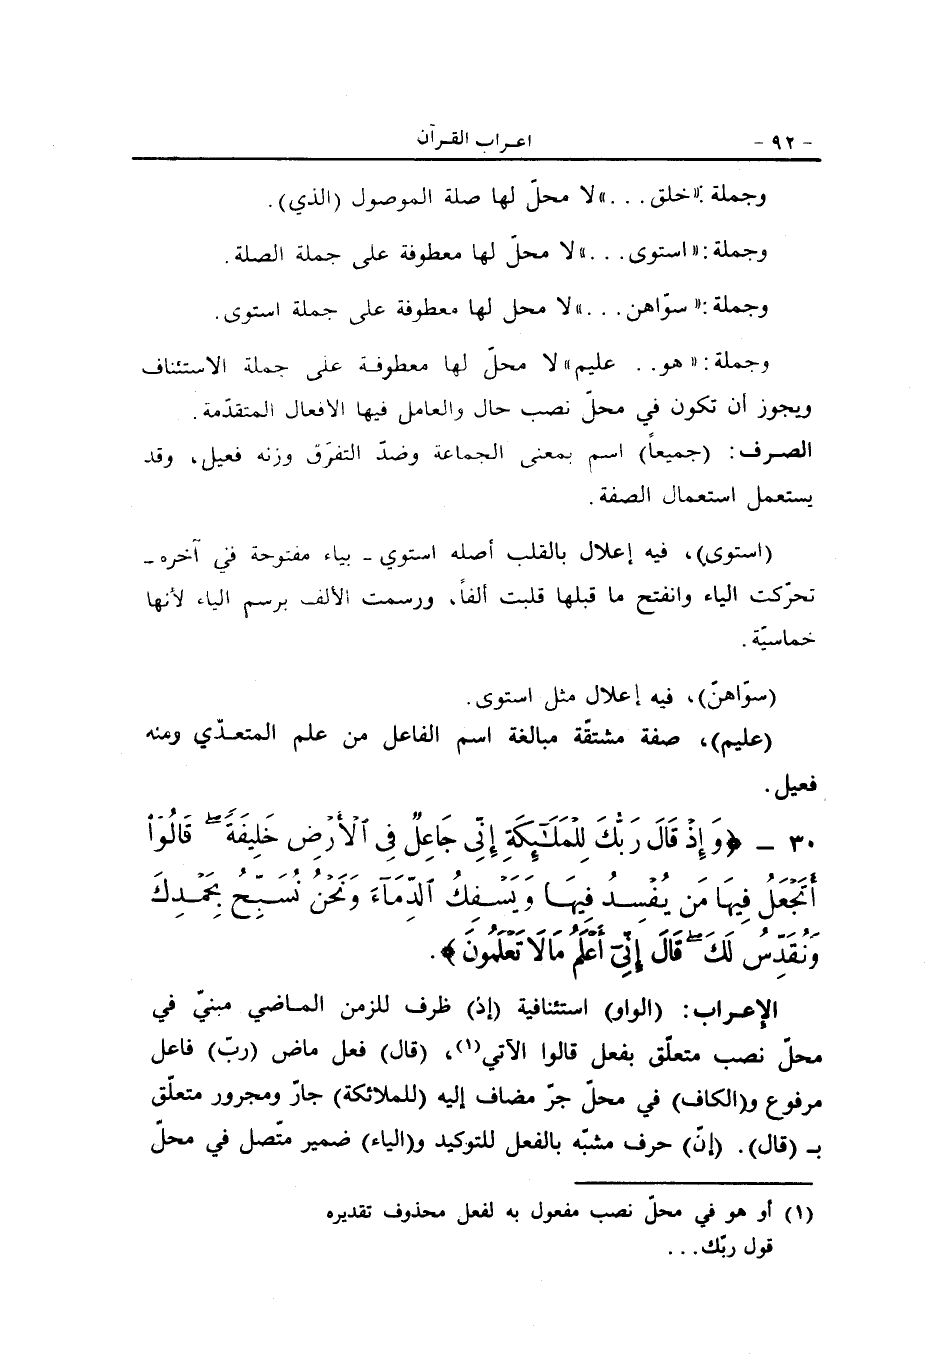 - ٩٢ - اعراب القرآن
وجملة :«خلق . . .» لا محلّ لها صلة الموصول (الذي) .
وجملة :« استوى . . .» لا محلّ لها معطوفة على جملة الصلة .
وجملة :« سوّاهن . . .» لا محل لها معطوفة على جملة استوى .
وجملة :« هو . . عليم» لا محلّ لها معطوفة على جملة الاستئناف
ويجوز أن تكون في محلّ نصب حال والعامل فيها الافعال المتقدّمة .
الصرف : (جميعاً) اسم بمعنى الجماعة وضدّ التفرّق وزنه فعيل، وقد
يستعمل استعمال الصفة .
(استوى)، فيه إعلال بالقلب أصله استوي - بياء مفتوحة في آخره -
تحرّكت الياء وانفتح ما قبلها قلبت ألفاً، ورسمت الألف برسم الياء لأنها
خماسيّة .
(سوّاهنّ)، فيه إعلال مثل استوى .
(عليم)، صفة مشتقّة مبالغة اسم الفاعل من علم المتعدّي ومنه
فعيل .
٣٠ - ﴿وَإِذْ قَالَ رَبُّكَ لِلْمَلَٰٓئِكَةِ إِنِّي جَاعِلٌ فِي ٱلْأَرْضِ خَلِيفَةً ۖ قَالُوٓا۟
أَتَجْعَلُ فِيهَا مَن يُفْسِدُ فِيهَا وَيَسْفِكُ ٱلدِّمَآءَ وَنَحْنُ نُسَبِّحُ بِحَمْدِكَ
وَنُقَدِّسُ لَكَ ۖ قَالَ إِنِّيٓ أَعْلَمُ مَا لَا تَعْلَمُونَ﴾ .
الإعراب : (الواو) استئنافية (إذ) ظرف للزمن الماضي مبنيّ في
محلّ نصب متعلّق بفعل قالوا الآتي(١)، (قال) فعل ماض (ربّ) فاعل
مرفوع و(الكاف) في محلّ جرّ مضاف إليه (للملائكة) جارّ ومجرور متعلّق
بـ (قال). (إنّ) حرف مشبّه بالفعل للتوكيد و(الياء) ضمير متّصل في محلّ
(١) أو هو في محلّ نصب مفعول به لفعل محذوف تقديره
قول ربّك . . .